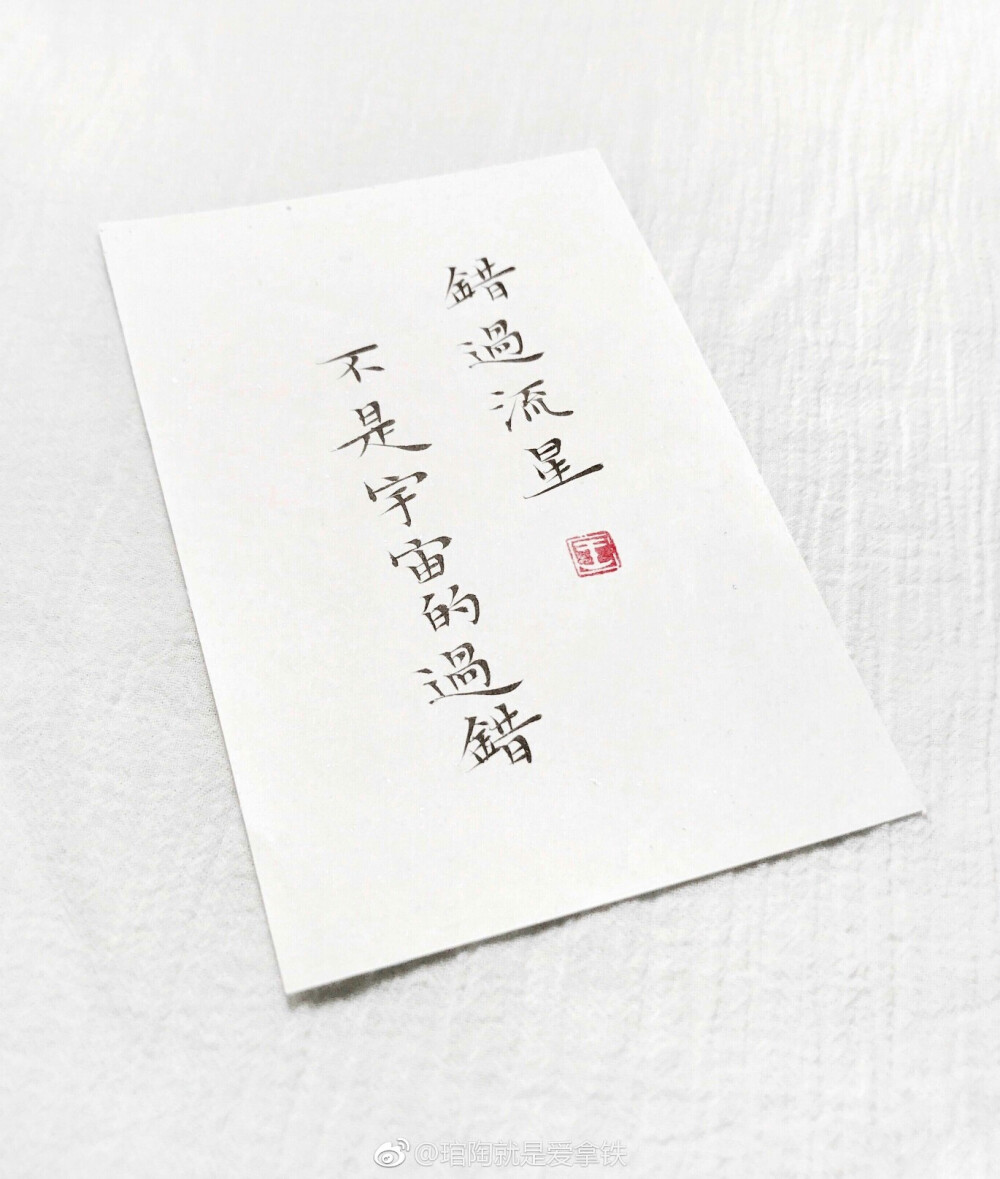 錯過流星
不是宇宙的過錯
王
@琯陶就是爱拿铁